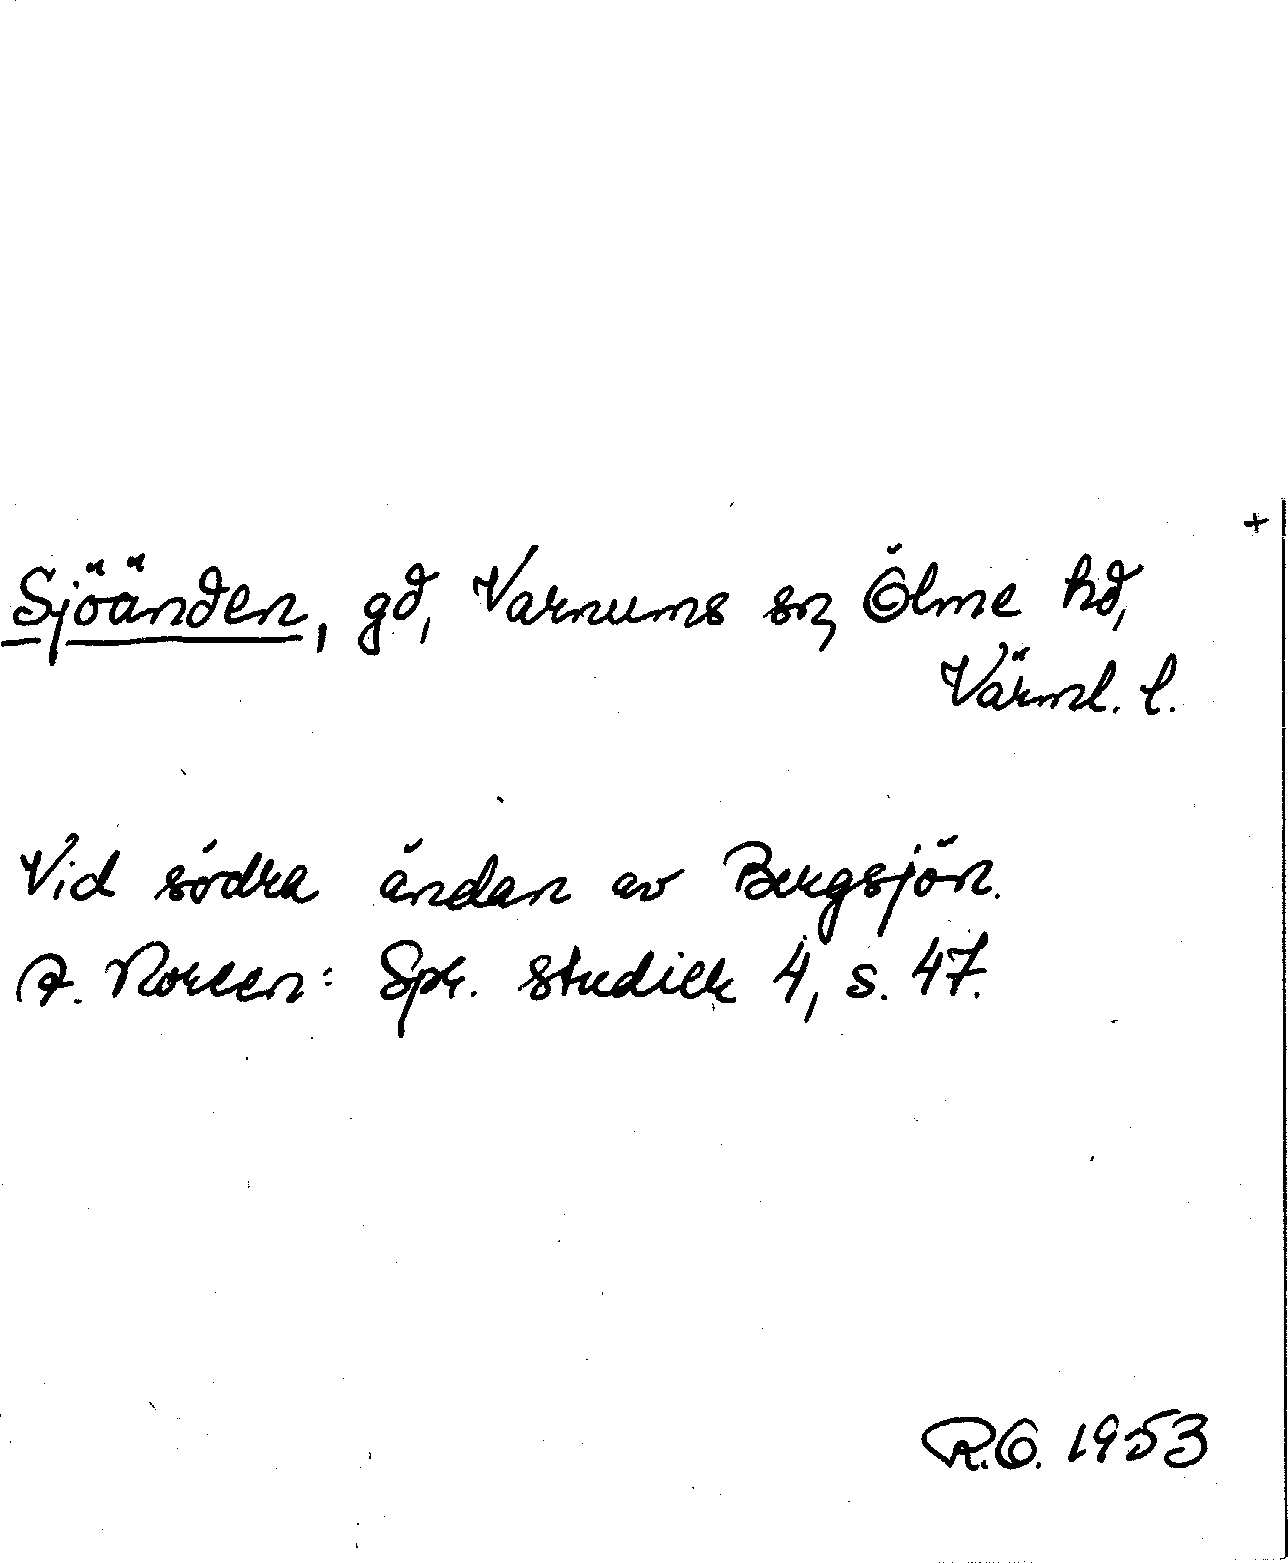 +
Sjöänden, gd, Varnums sn, Ölme hd,
Värml. l.
Vid södra ändan av Bergsjön.
A. Noreen: Spr. studier 4, s. 47.
R.O. 1953